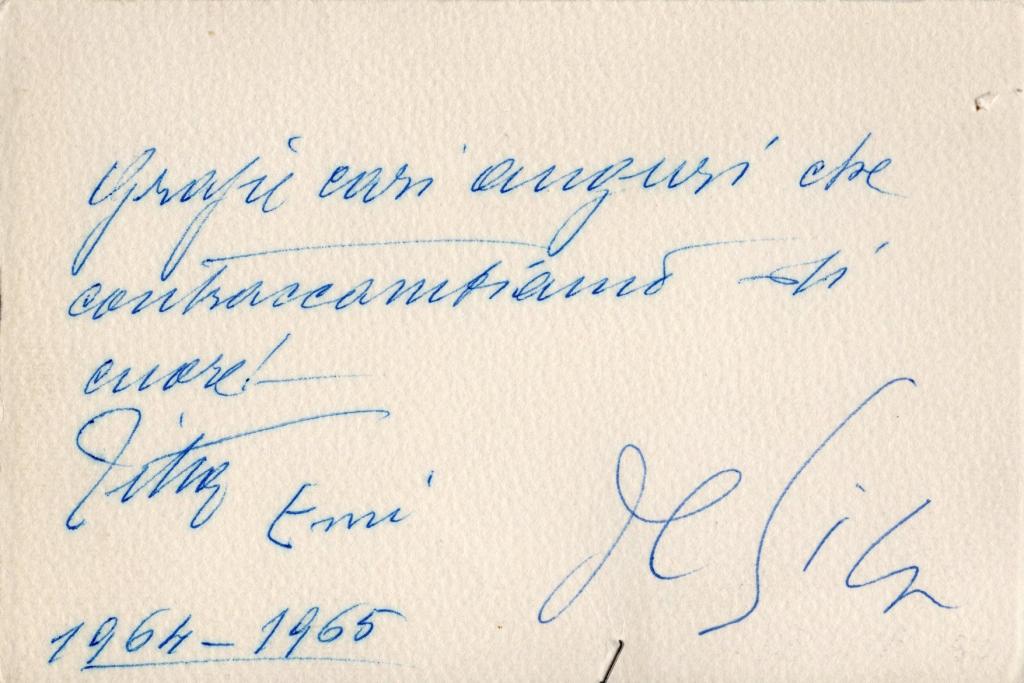 Grazie cari auguri che
contraccambiamo di
cuore!
Emi
De Sica
1964-1965